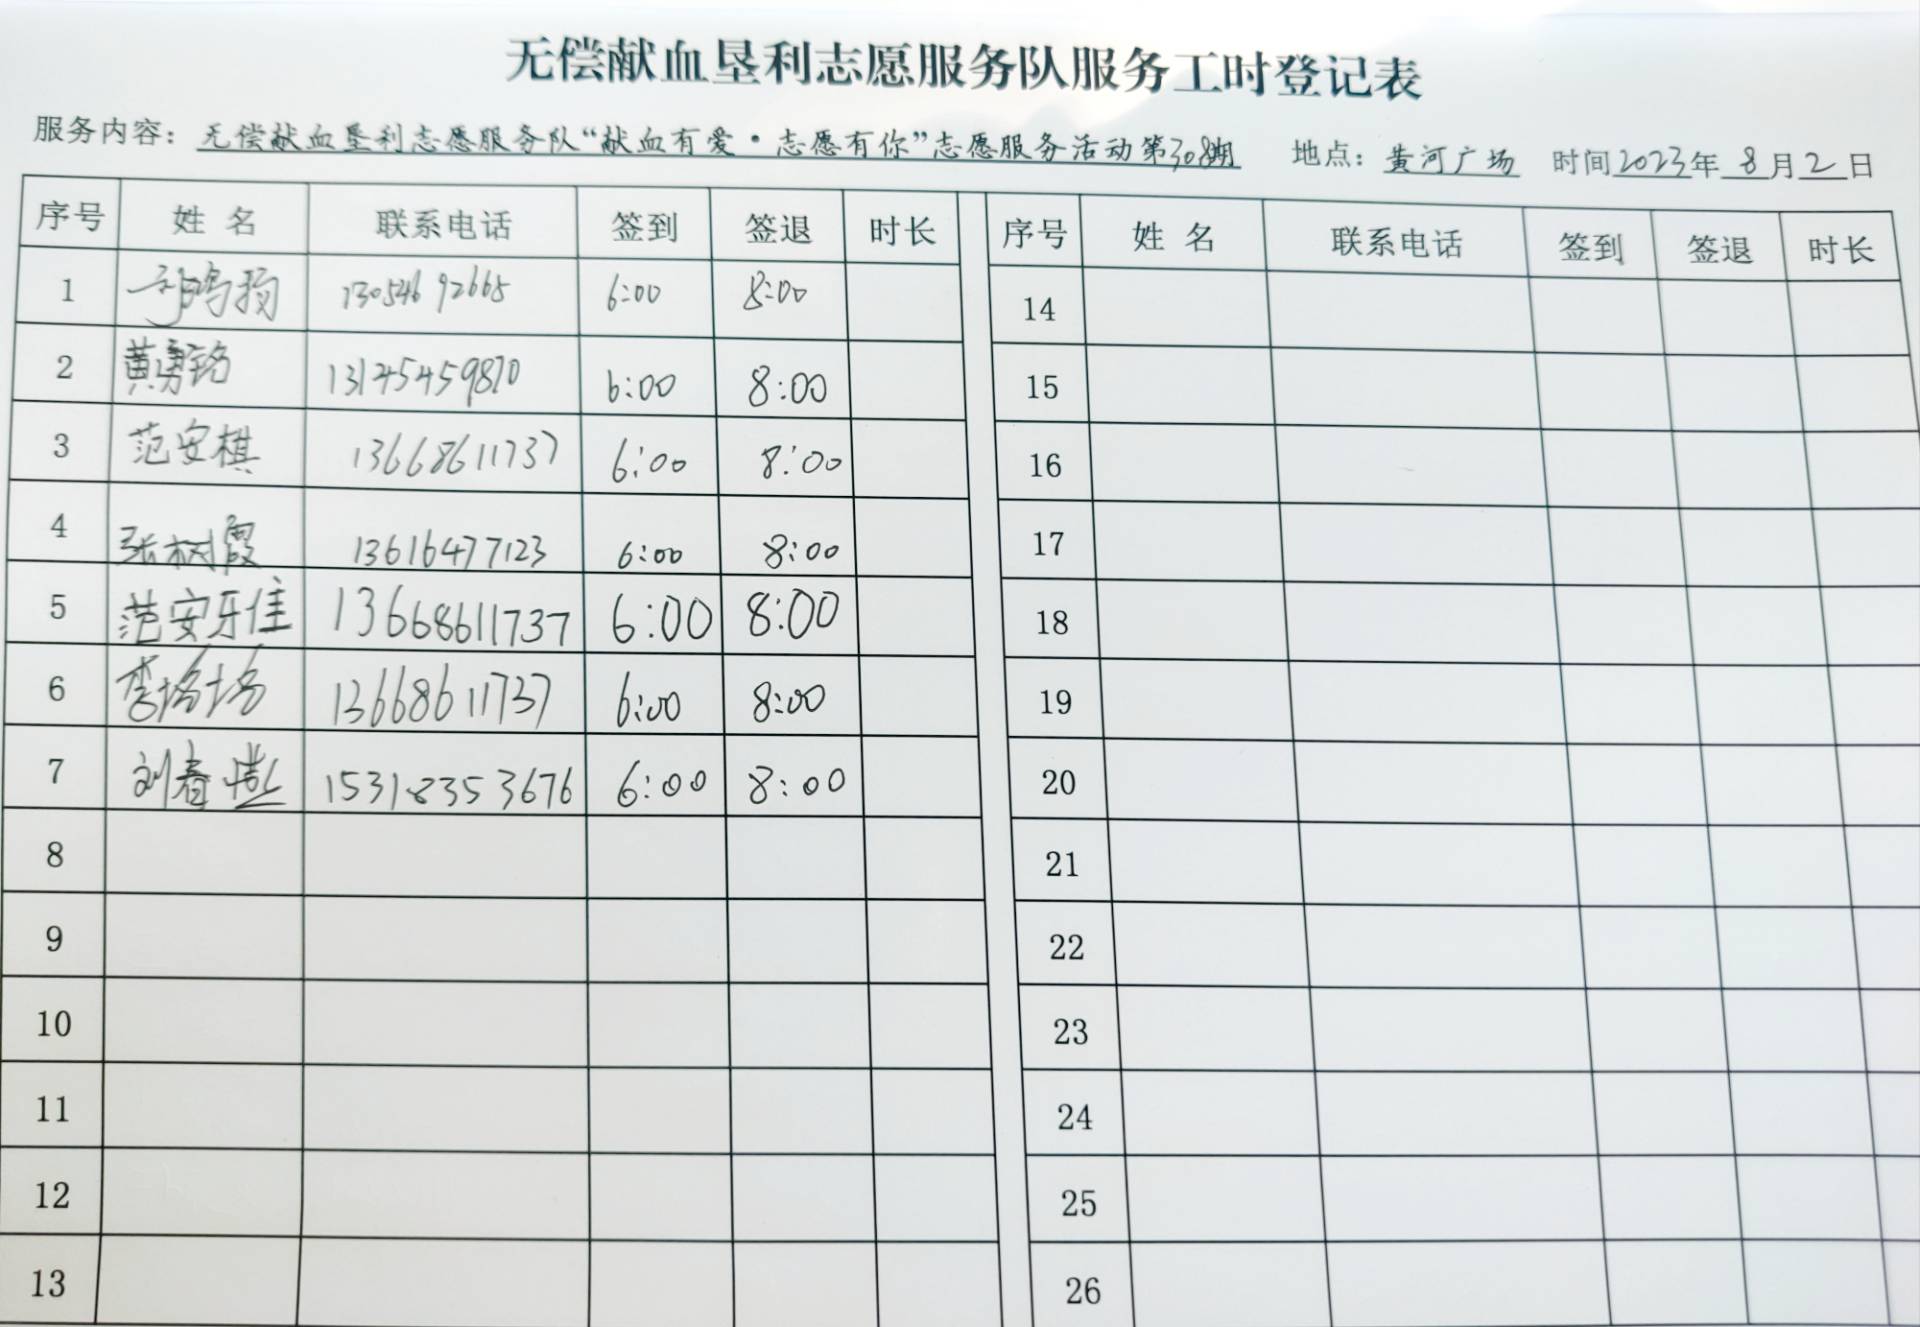 无偿献血垦利志愿服务队服务工时登记表
服务内容：无偿献血垦利志愿服务队“献血有爱·志愿有你”志愿服务活动第308期 地点：黄河广场 时间2023年8月2日
序号 姓名 联系电话 签到 签退 时长 序号 姓名 联系电话 签到 签退 时长
1 13054692665 6:00 8:00 14
2 黄勇铭 13145459870 6:00 8:00 15
3 范安棋 13668611737 6:00 8:00 16
4 张树霞 13616477123 6:00 8:00 17
5 范安牙佳 13668611737 6:00 8:00 18
6 李培培 13668611737 6:00 8:00 19
7 刘春燕 15318353676 6:00 8:00 20
8 21
9 22
10 23
11 24
12 25
13 26